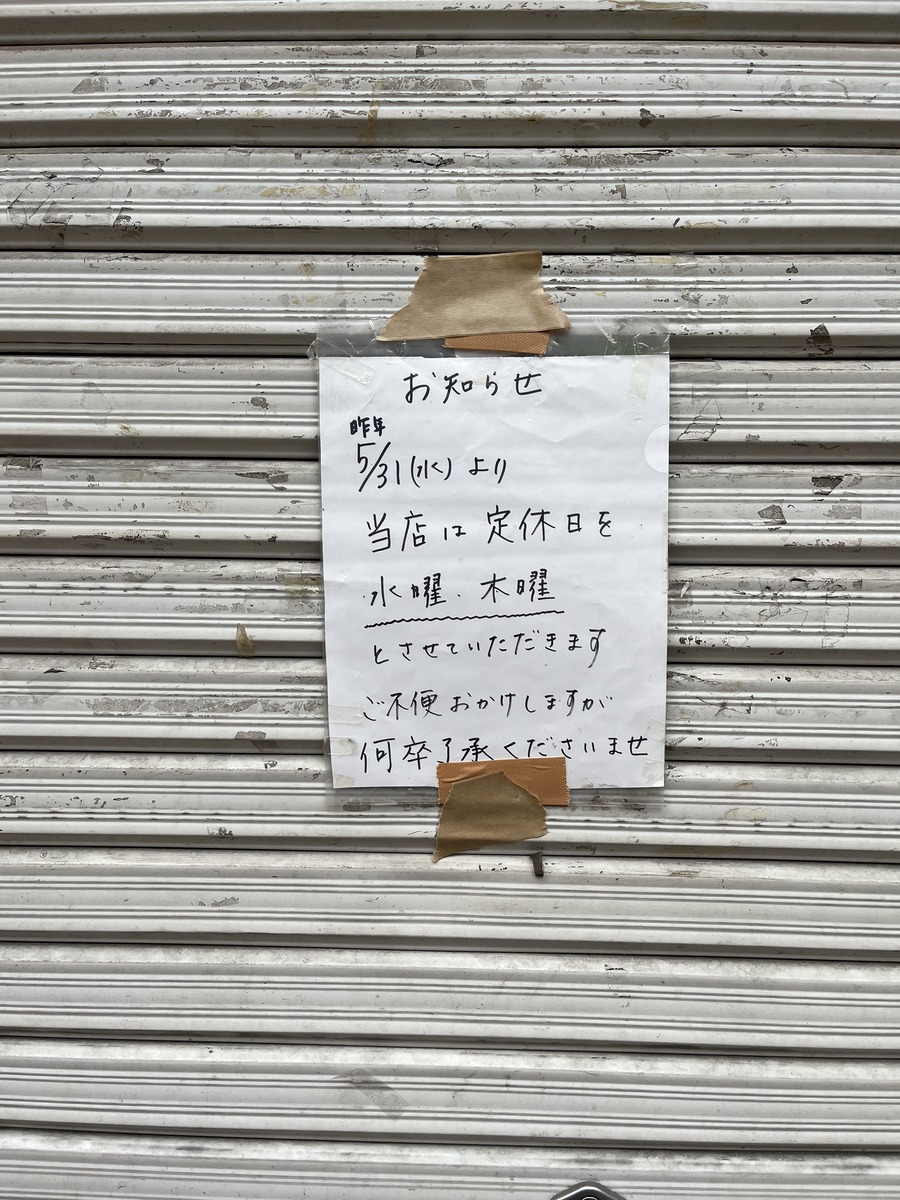 お知らせ
昨年
5/31(水)より
当店は定休日を
水曜.木曜
とさせていただきます
ご不便おかけしますが
何卒了承くださいませ